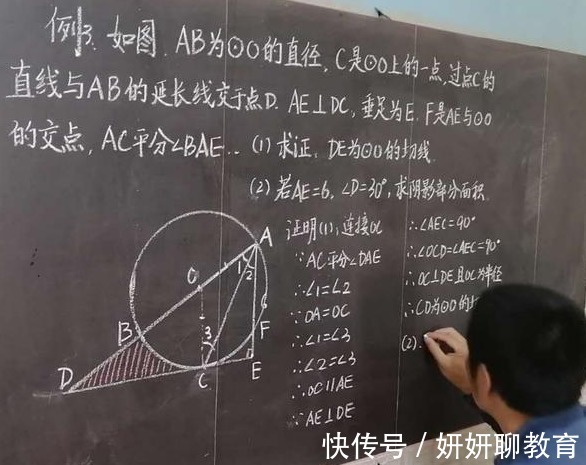 例13. 如图, AB为⊙O的直径, C是⊙O上的一点, 过点C的
直线与AB的延长线交于点D. AE⊥DC, 垂足为E. F是AE与⊙O
的交点, AC平分∠BAE.. (1) 求证: DE为⊙O的切线.
(2) 若AE=6, ∠D=30°, 求阴影部分面积.
证明(1): 连接OC
∵AC平分∠DAE
∴∠1=∠2
∵OA=OC
∴∠1=∠3
∴∠2=∠3
∴OC∥AE
∵AE⊥DE
∴∠AEC=90°
∴∠OCD=∠AEC=90°
∴OC⊥DE且OC为半径
∴CD为⊙O的切
(2).
A
1
2
O
6
B
3
F
D
C
E
快传号 / 妍妍聊教育